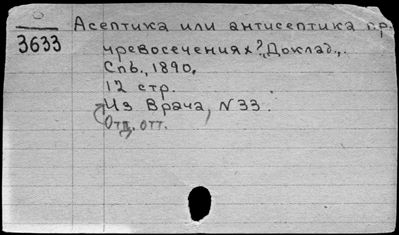 Асептика или антисептика пр.
3633
чревосечениях? Доклад.
Спб., 1890.
12 стр.
Из Врача, N 33.
Отд. отт.